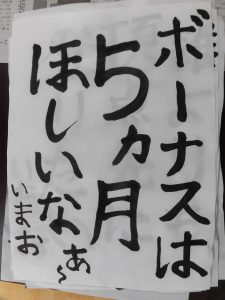 ボーナスは
5ヵ月
ほしいなぁ〜
いまお